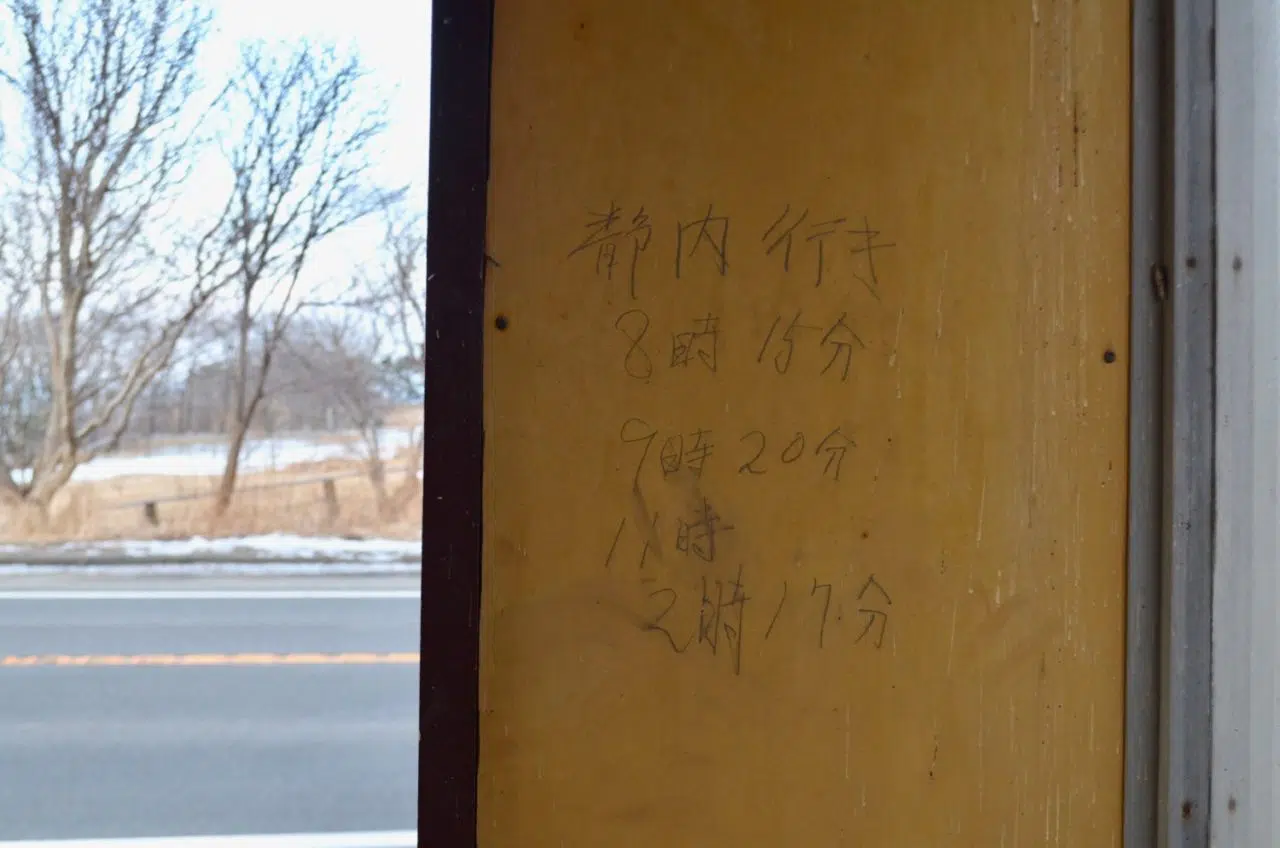 静内行き
8時15分
9時20分
11時
2時17分